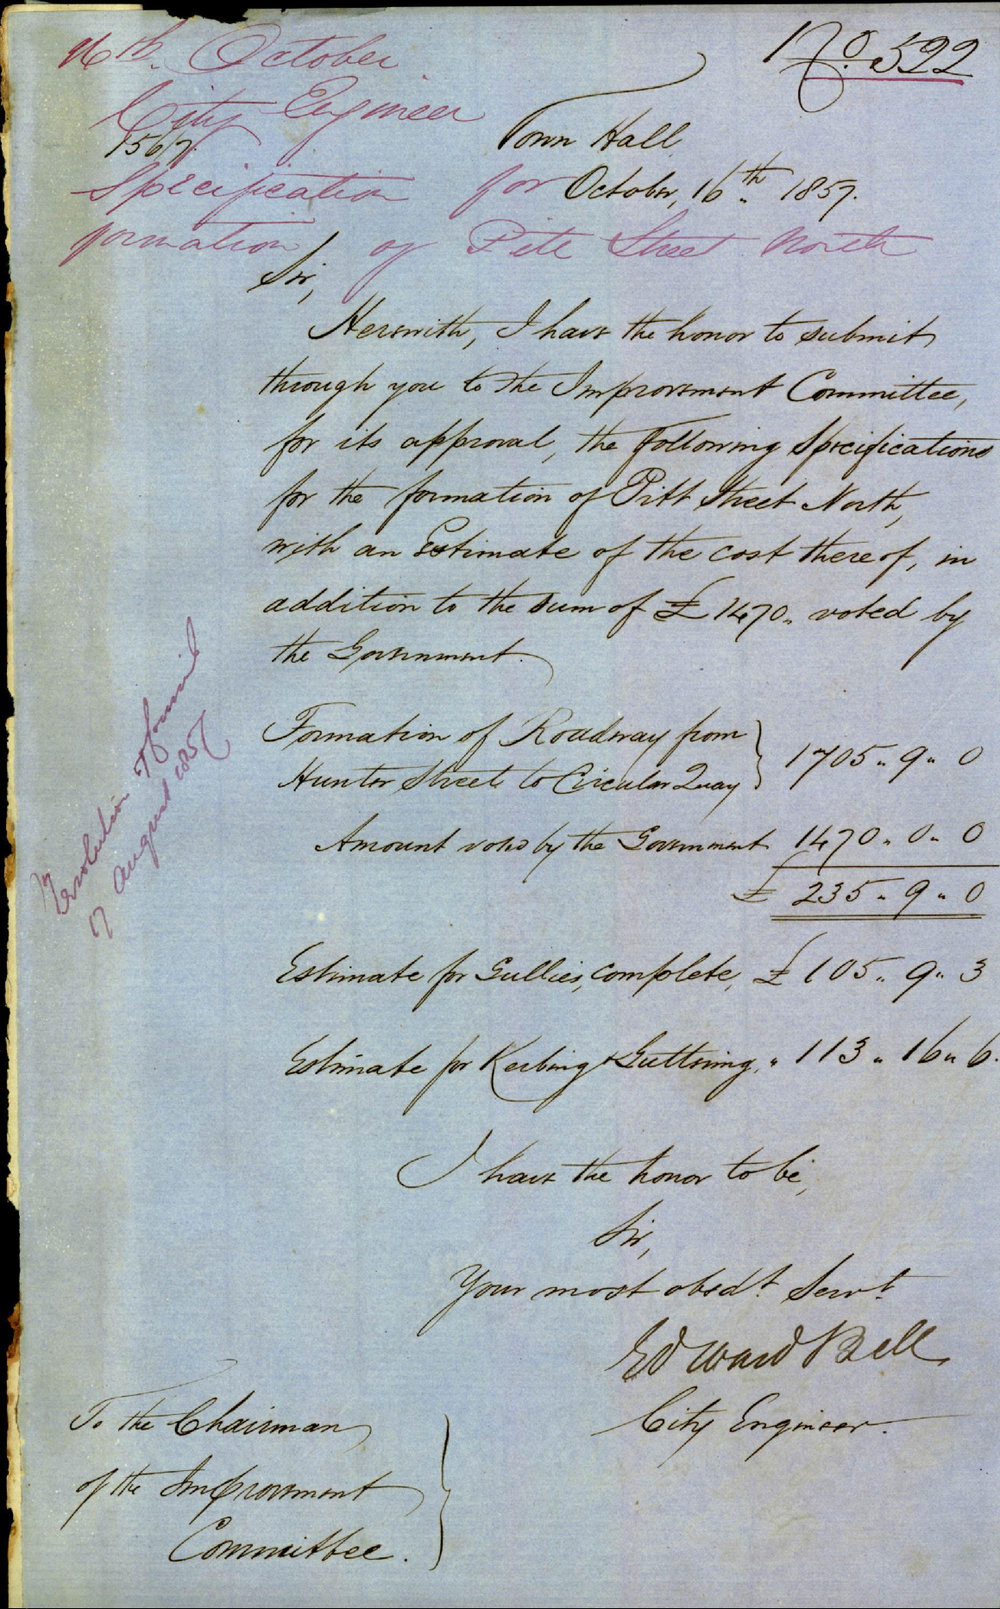 No. 522
16th. October
City Engineer
156/7.
Specification for
formation of Pitt Street North
Town Hall
October, 16th. 1857.
Sir,
Herewith, I have the honor to submit
through you to the Improvement Committee,
for its approval, the following Specifications
for the formation of Pitt Street North,
with an Estimate of the cost thereof, in
addition to the sum of £1470. voted by
the Government.
Formation of Roadway from
Hunter Street to Circular Quay } 1705 " 9 " 0
Amount voted by the Government 1470 " 0 " 0
£ 235 " 9 " 0
Estimate for Gullies, complete, £ 105 " 9 " 3
Estimate for Kerbing & Guttering, " 113 " 16 " 6.
Resolution of Council
17 August 1857
I have the honor to be,
Sir,
Your most obedt. Servt.
Edward Bell
City Engineer.
To the Chairman
of the Improvement
Committee.